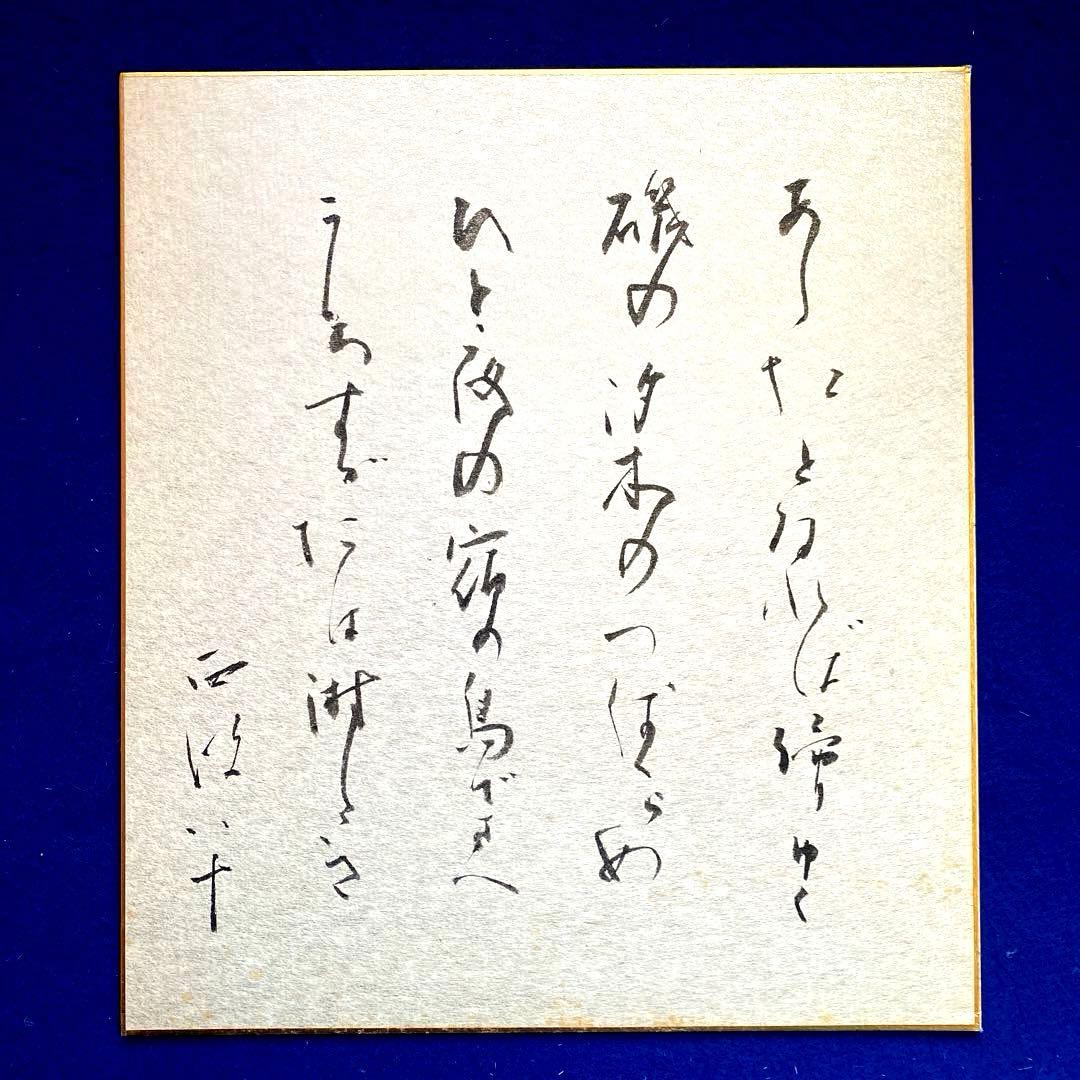 あしたとなれば帰りゆく
磯の汐木のつばくらめ
ひと夜の宿の鳥でさへ
うしろすがたは淋し
西條八十